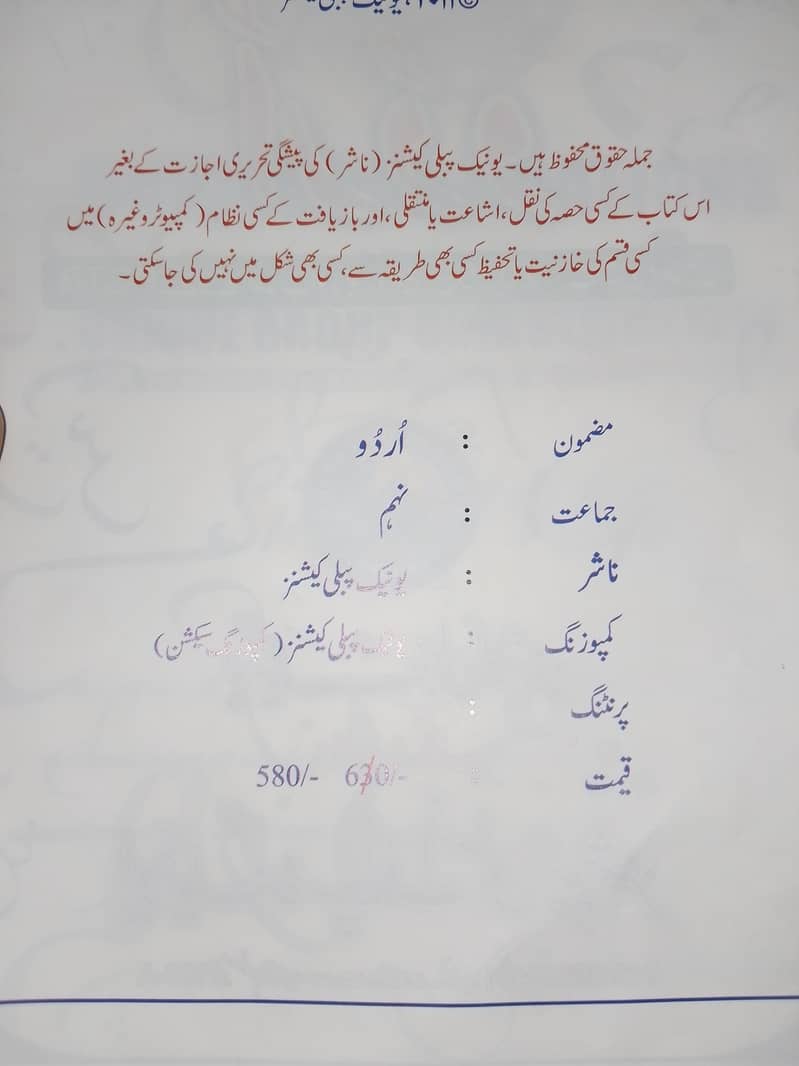 جملہ حقوق محفوظ ہیں۔ یونیک پبلی کیشنز (ناشر) کی پیشگی تحریری اجازت کے بغیر
اس کتاب کے کسی حصہ کی نقل، اشاعت یا منتقلی، اور بازیافت کے کسی نظام (کمپیوٹر وغیرہ) میں
کسی قسم کی خازنیت یا تحفیظ کسی بھی طریقہ سے، کسی بھی شکل میں نہیں کی جا سکتی۔
مضمون : اُردُو
جماعت : نہم
ناشر : یونیک پبلی کیشنز
کمپوزنگ : یونیک پبلی کیشنز (کمپوزنگ سیکشن)
پرنٹنگ :
قیمت : 630/- 580/-